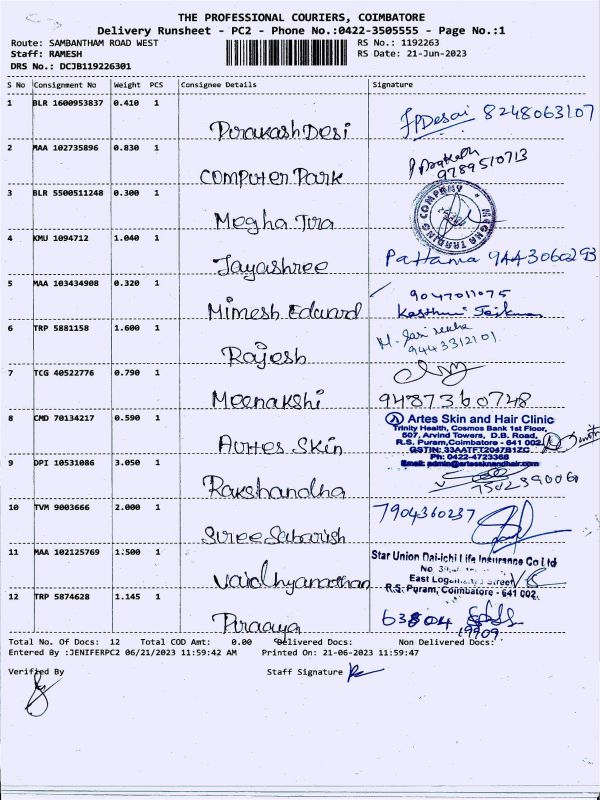 THE PROFESSIONAL COURIERS, COIMBATORE
Delivery Runsheet - PC2 - Phone No.:0422-3505555 - Page No.:1
Route: SAMBANTHAM ROAD WEST RS No.: 1192263
Staff: RAMESH RS Date: 21-Jun-2023
DRS No.: DCJB119226301
S No Consignment No Weight PCS Consignee Details Signature
1 BLR 1600953837 0.410 1
PirakashDesi JPDesai 8248063107
2 MAA 102735896 0.830 1
computer Park 9789510713
3 BLR 5500511248 0.300 1
Megha Tra MEGHA TRADING COMPANY
4 KMU 1094712 1.040 1
Jayashree Pattama 9443060293
5 MAA 103434908 0.320 1 9047011075
Mimesh Edward
6 TRP 5881158 1.600 1
Rajesh 9443312101
7 TCG 40522776 0.790 1
Meenakshi 9487360748
8 CMD 70134217 0.590 1 Artes Skin and Hair Clinic
Trinity Health, Cosmos Bank 1st Floor,
507, Arvind Towers, D.B. Road,
R.S. Puram, Coimbatore - 641 002
Aurtes Skin GSTIN: 33AATFT2047B1ZC
Ph: 0422-4723368
9 DPI 10531086 3.050 1 Email: admin@artesskinandhair.com
Rakshandha
10 TVM 9003666 2.000 1 7904360237
Siree Sabarish
11 MAA 102125769 1.500 1 Star Union Dai-ichi Life Insurance Co Ltd
Vaidhyanathan East
R.S. Puram, Coimbatore - 641 002.
12 TRP 5874628 1.145 1
Piraaya 63804
19909
Total No. Of Docs: 12 Total COD Amt: 0.00 Delivered Docs: Non Delivered Docs:
Entered By :JENIFERPC2 06/21/2023 11:59:42 AM Printed On: 21-06-2023 11:59:47
Verified By Staff Signature